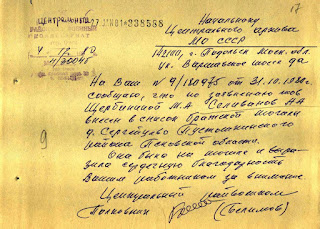 17
ЦЕНТРАЛЬНЫЙ
27 ЯНВ 1* 338568
Начальнику
Центрального архива
МО СССР
142100, г. Подольск Моск. обл.
ул. Варшавское шоссе
На Ваш № 9/180475 от 31.10.
сообщаю, что по заявлению тов
Щербининой М.А. Селиванов АА
внесен в список братской могилы
д. Сергейцево Пустошкинского
района Псковской области.
Она была на могиле и выра-
зила сердечную благодарность
Вашим работникам за внимание.
Центральный райвоенком
Полковник
9